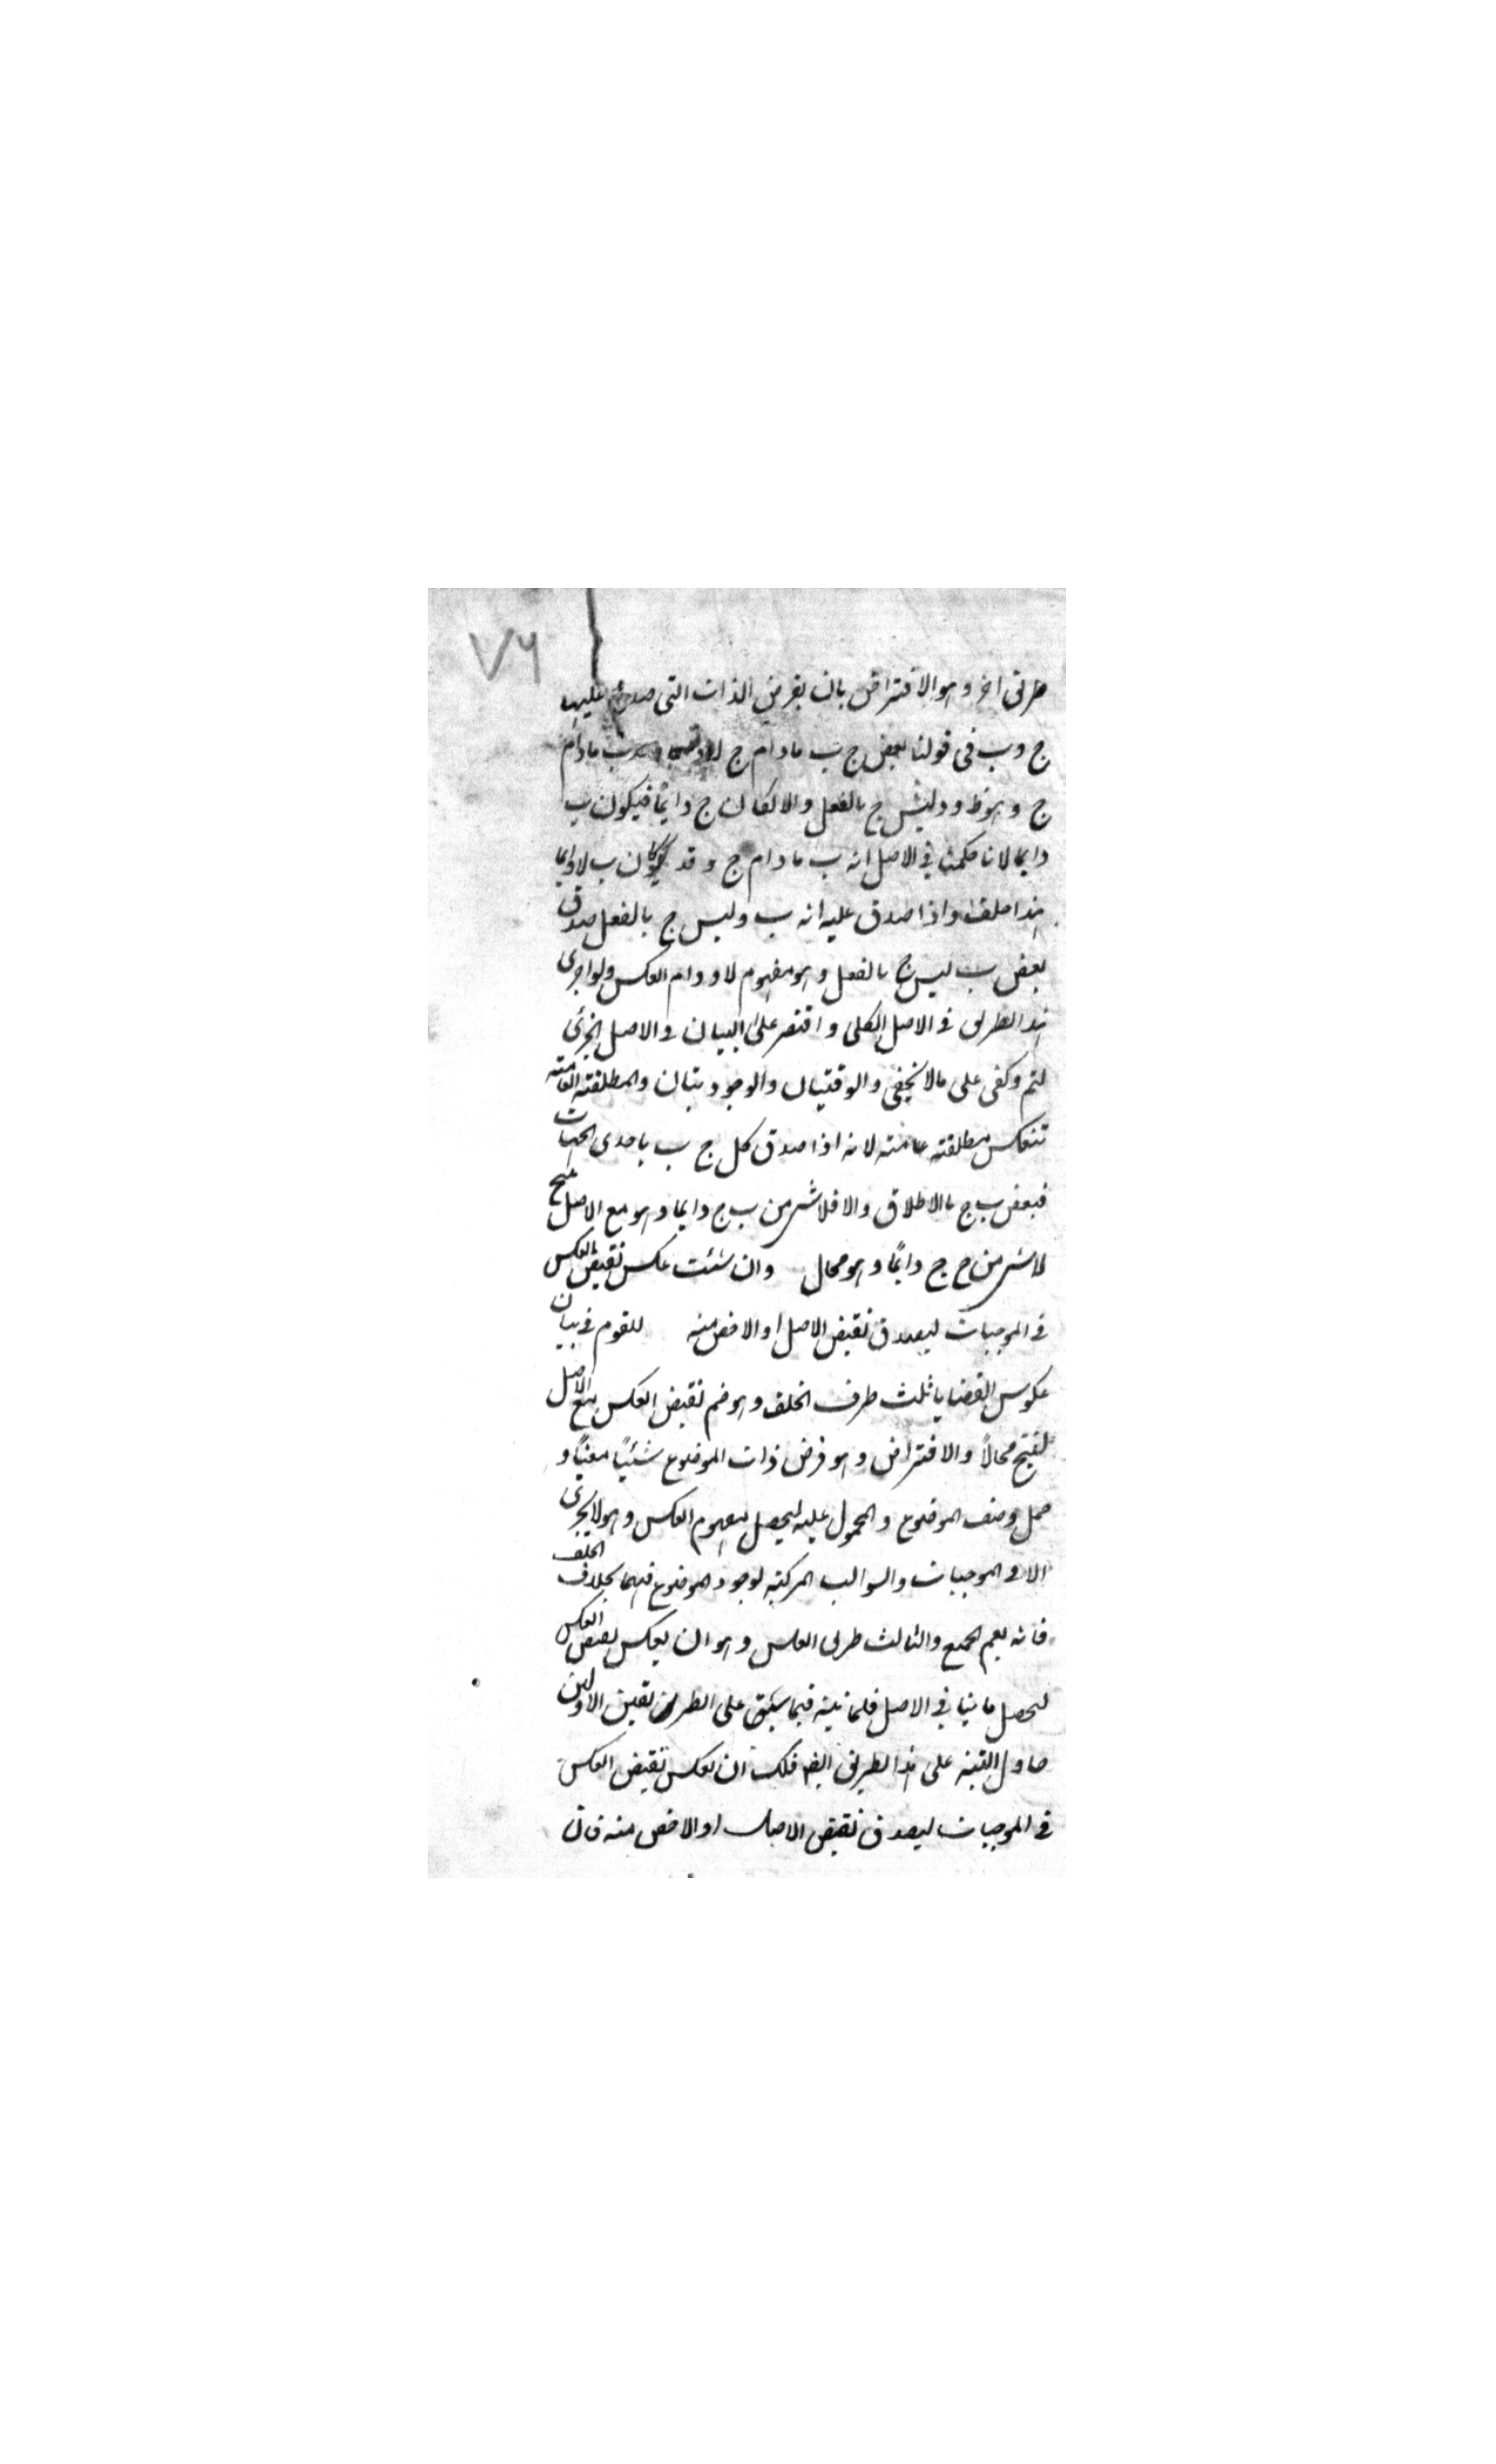 ٧٦
طريق اخر وهو الافتراض بان يفرض الذات التى صدق عليها
ج وب فى قولنا بعض ج ب مادام ج لا دايما ب مادام
ج وهو ظ و د ليس ج بالفعل والا لكان ج دايمًا فيكون ب
دايما لانا حكمنا فى الاصل انه ب مادام ج وقد كان ب لا دايما
هذا خلف واذا صدق عليه انه ب وليس ج بالفعل صدق
بعض ب ليس ج بالفعل وهو مفهوم لا دوام العكس ولو اجرى
هذا الطريق فى الاصل الكلى و اقتصر على البيان فى الاصل الجزئى
لتم وكفى على ما لا يخفى والوقتيتان والوجوديتان والمطلقة العامة
تنعكس مطلقة عامة لانه اذا صدق كل ج ب باحدى الجهات
فبعض ب ج بالاطلاق والا فلا شى من ب ج دايما وهو مع الاصل ينتج
لا شى من ج ج دايمًا وهو محال وان شئت عكس نقيض العكس
فى الموجبات ليصدق نقيض الاصل او الاخص منه للقوم فى بيان
عكوس القضايا ثلث طرق الخلف وهو ضم نقيض العكس مع الاصل
لينتج محالاً والافتراض وهو فرض ذات الموضوع شيئًا معينًا و
حمل وصف الموضوع والمحمول عليه ليحصل مفهوم العكس وهو لا يجرى
الا فى الموجبات والسوالب المركبة لوجود الموضوع فيهما بخلاف الخلف
فانه يعم الجميع والثالث طريق العكس وهو ان يعكس نقيض العكس
ليحصل ما ينا فى الاصل فلما نبه فيما سبق على الطريقين الاولين
حاول التنبه على هذا الطريق ايضا فلك ان تعكس نقيض العكس
فى الموجبات ليصدق نقيض الاصل او الاخص منه فان